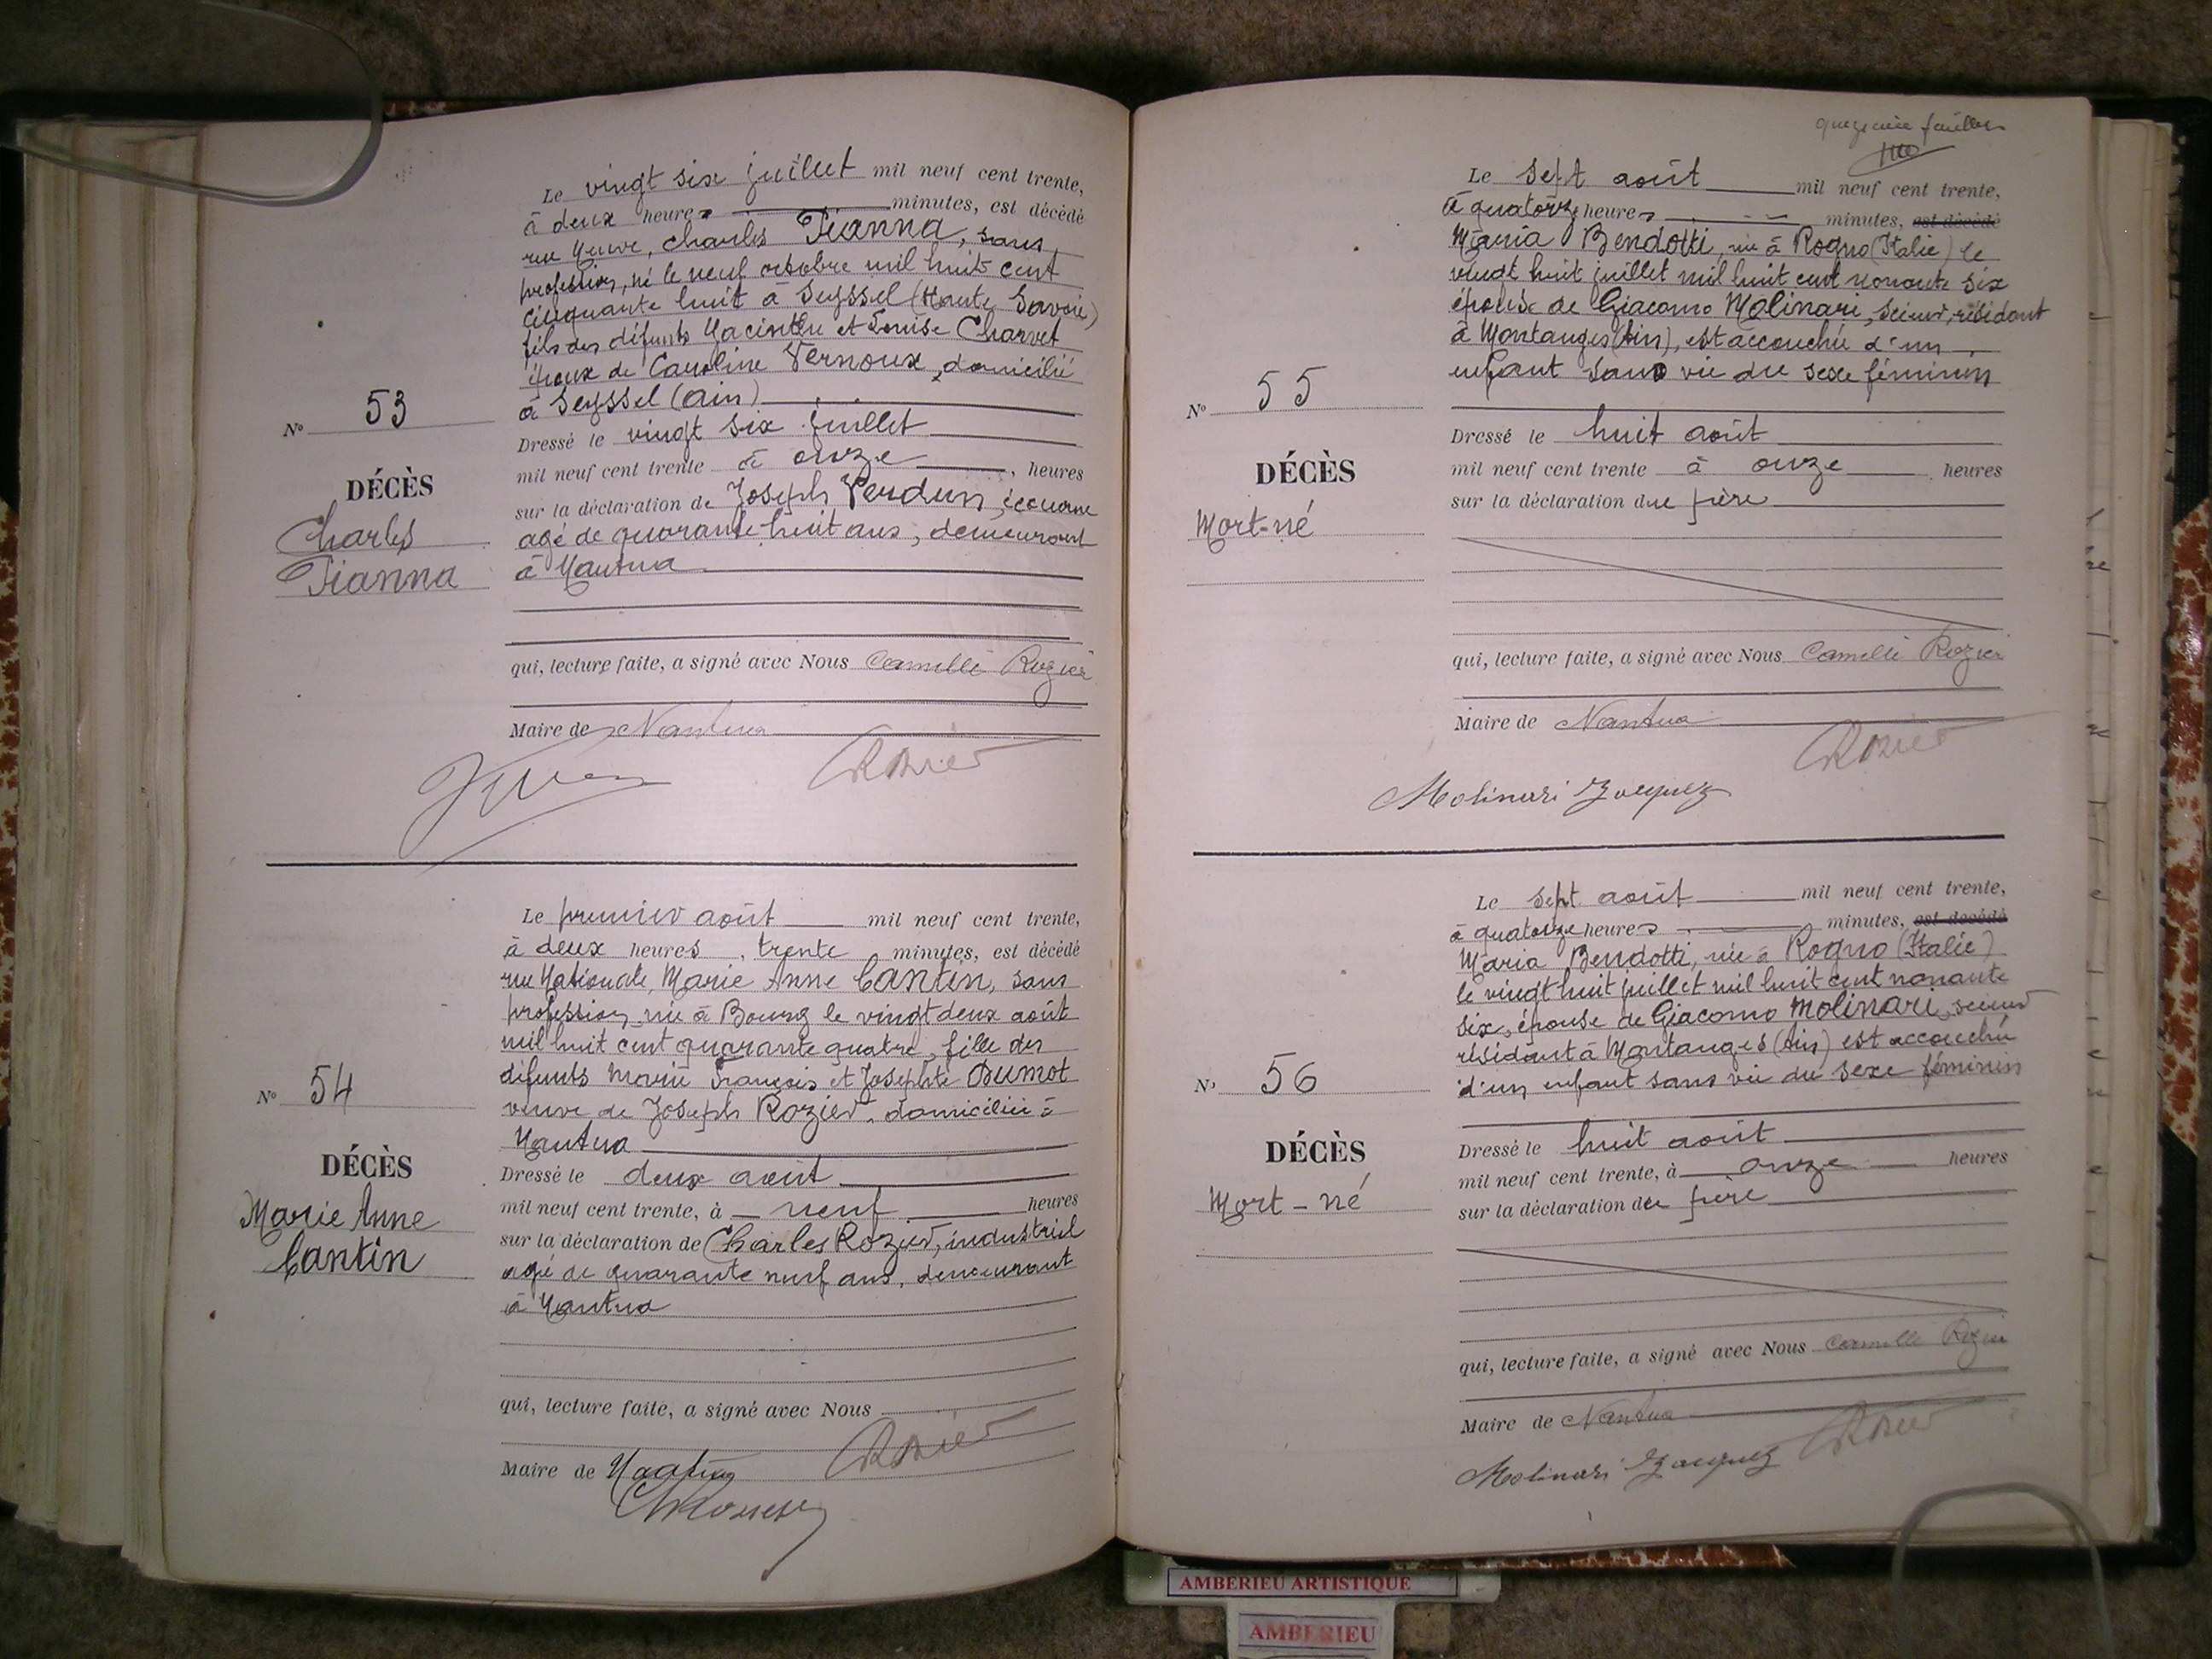 Le vingt six juillet mil neuf cent trente,
à deux heures minutes, est décédé
rue Neuve, Charles Pianna, sans
profession, né le neuf octobre mil huit cent
cinquante huit à Seyssel (Haute Savoie)
fils des défunts Hacinthe et Louise Charvet
époux de Caroline Vernoux, domicilié
à Seyssel (Ain)
N° 53
DÉCÈS
Charles
Pianna
Dressé le vingt six juillet
mil neuf cent trente à onze, heures
sur la déclaration de Joseph Verdun, économe
agé de quarante huit ans, demeurant
à Nantua
qui, lecture faite, a signé avec Nous Camille Rozier
Maire de Nantua
Rozier
Le premier août mil neuf cent trente,
à deux heures, trente minutes, est décédé
rue Nationale, Marie Anne Cantin, sans
profession, née à Bourg le vingt deux août
mil huit cent quarante quatre, fille des
défunts Marie François et Josephte Dumot
veuve de Joseph Rozier, domiciliée à
Nantua
N° 54
DÉCÈS
Marie Anne
Cantin
Dressé le deux août
mil neuf cent trente, à neuf heures
sur la déclaration de Charles Rozier, industriel
agé de quarante neuf ans, demeurant
à Nantua
qui, lecture faite, a signé avec Nous
Maire de Nantua
Rozier
feuillet
Le sept août mil neuf cent trente,
à quatorze heures minutes, est décédé
Maria Bendotti, née à Rogno (Italie) le
vingt huit juillet mil huit cent nonante six
épouse de Giacomo Molinari, scieur, résidant
à Montanges (Ain), est accouchée d'un
enfant sans vie du sexe féminin
N° 55
DÉCÈS
Mort-né
Dressé le huit août
mil neuf cent trente à onze heures
sur la déclaration du père
qui, lecture faite, a signé avec Nous Camille Rozier
Maire de Nantua
Rozier
Molinari Jacques
Le sept août mil neuf cent trente,
à quatorze heures minutes, est décédé
Maria Bendotti, née à Rogno (Italie)
le vingt huit juillet mil huit cent nonante
six, épouse de Giacomo Molinari, scieur
résidant à Montanges (Ain) est accouchée
d'un enfant sans vie du sexe féminin
N° 56
DÉCÈS
Mort-né
Dressé le huit août
mil neuf cent trente, à onze heures
sur la déclaration du père
qui, lecture faite, a signé avec Nous Camille Rozier
Maire de Nantua
Rozier
Molinari Jacques
AMBERIEU ARTISTIQUE
AMBERIEU